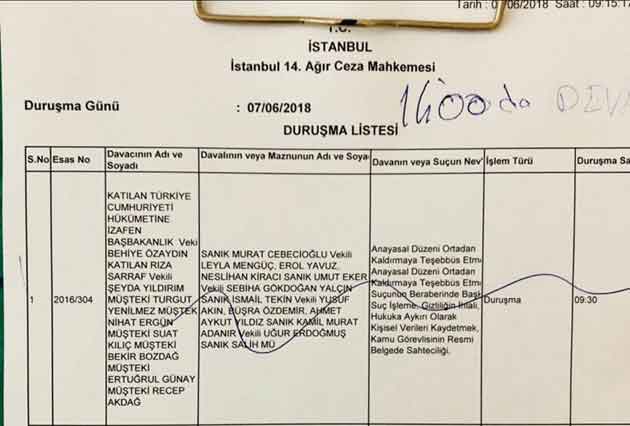 Tarih : 0 /06/2018 Saat : 09:15:17
T.C.
İSTANBUL
İstanbul 14. Ağır Ceza Mahkemesi
Duruşma Günü : 07/06/2018
14:00 da DEVA
DURUŞMA LİSTESİ
S.No Esas No Davacının Adı ve Soyadı Davalının veya Maznunun Adı ve Soya Davanın veya Suçun Nev' İşlem Türü Duruşma Sa
1 2016/304
KATILAN TÜRKİYE
CUMHURİYETİ
HÜKÜMETİNE
İZAFEN
BAŞBAKANLIK Veki
BEHİYE ÖZAYDIN
KATILAN RIZA
SARRAF Vekili
ŞEYDA YILDIRIM
MÜŞTEKİ TURGUT
YENİLMEZ MÜŞTEK
NİHAT ERGÜN
MÜŞTEKİ SUAT
KILIÇ MÜŞTEKİ
BEKİR BOZDAĞ
MÜŞTEKİ
ERTUĞRUL GÜNAY
MÜŞTEKİ RECEP
AKDAĞ
SANIK MURAT CEBECİOĞLU Vekili
LEYLA MENGÜÇ, EROL YAVUZ,
NESLİHAN KİRACI SANIK UMUT EKER
Vekili SEBİHA GÖKDOĞAN YALÇIN
SANIK İSMAİL TEKİN Vekili YUSUF
AKIN, BUŞRA ÖZDEMİR, AHMET
AYKUT YILDIZ SANIK KAMİL MURAT
ADANIR Vekili UĞUR ERDOĞMUŞ
SANIK SALİH MÜ
Anayasal Düzeni Ortadan
Kaldırmaya Teşebbüs Etme
Anayasal Düzeni Ortadan
Kaldırmaya Teşebbüs Etme
Suçunun Beraberinde Başl
Suç İşleme, Gizliliğin İhlali,
Hukuka Aykırı Olarak
Kişisel Verileri Kaydetmek,
Kamu Görevlisinin Resmi
Belgede Sahteciliği,
Duruşma
09:30